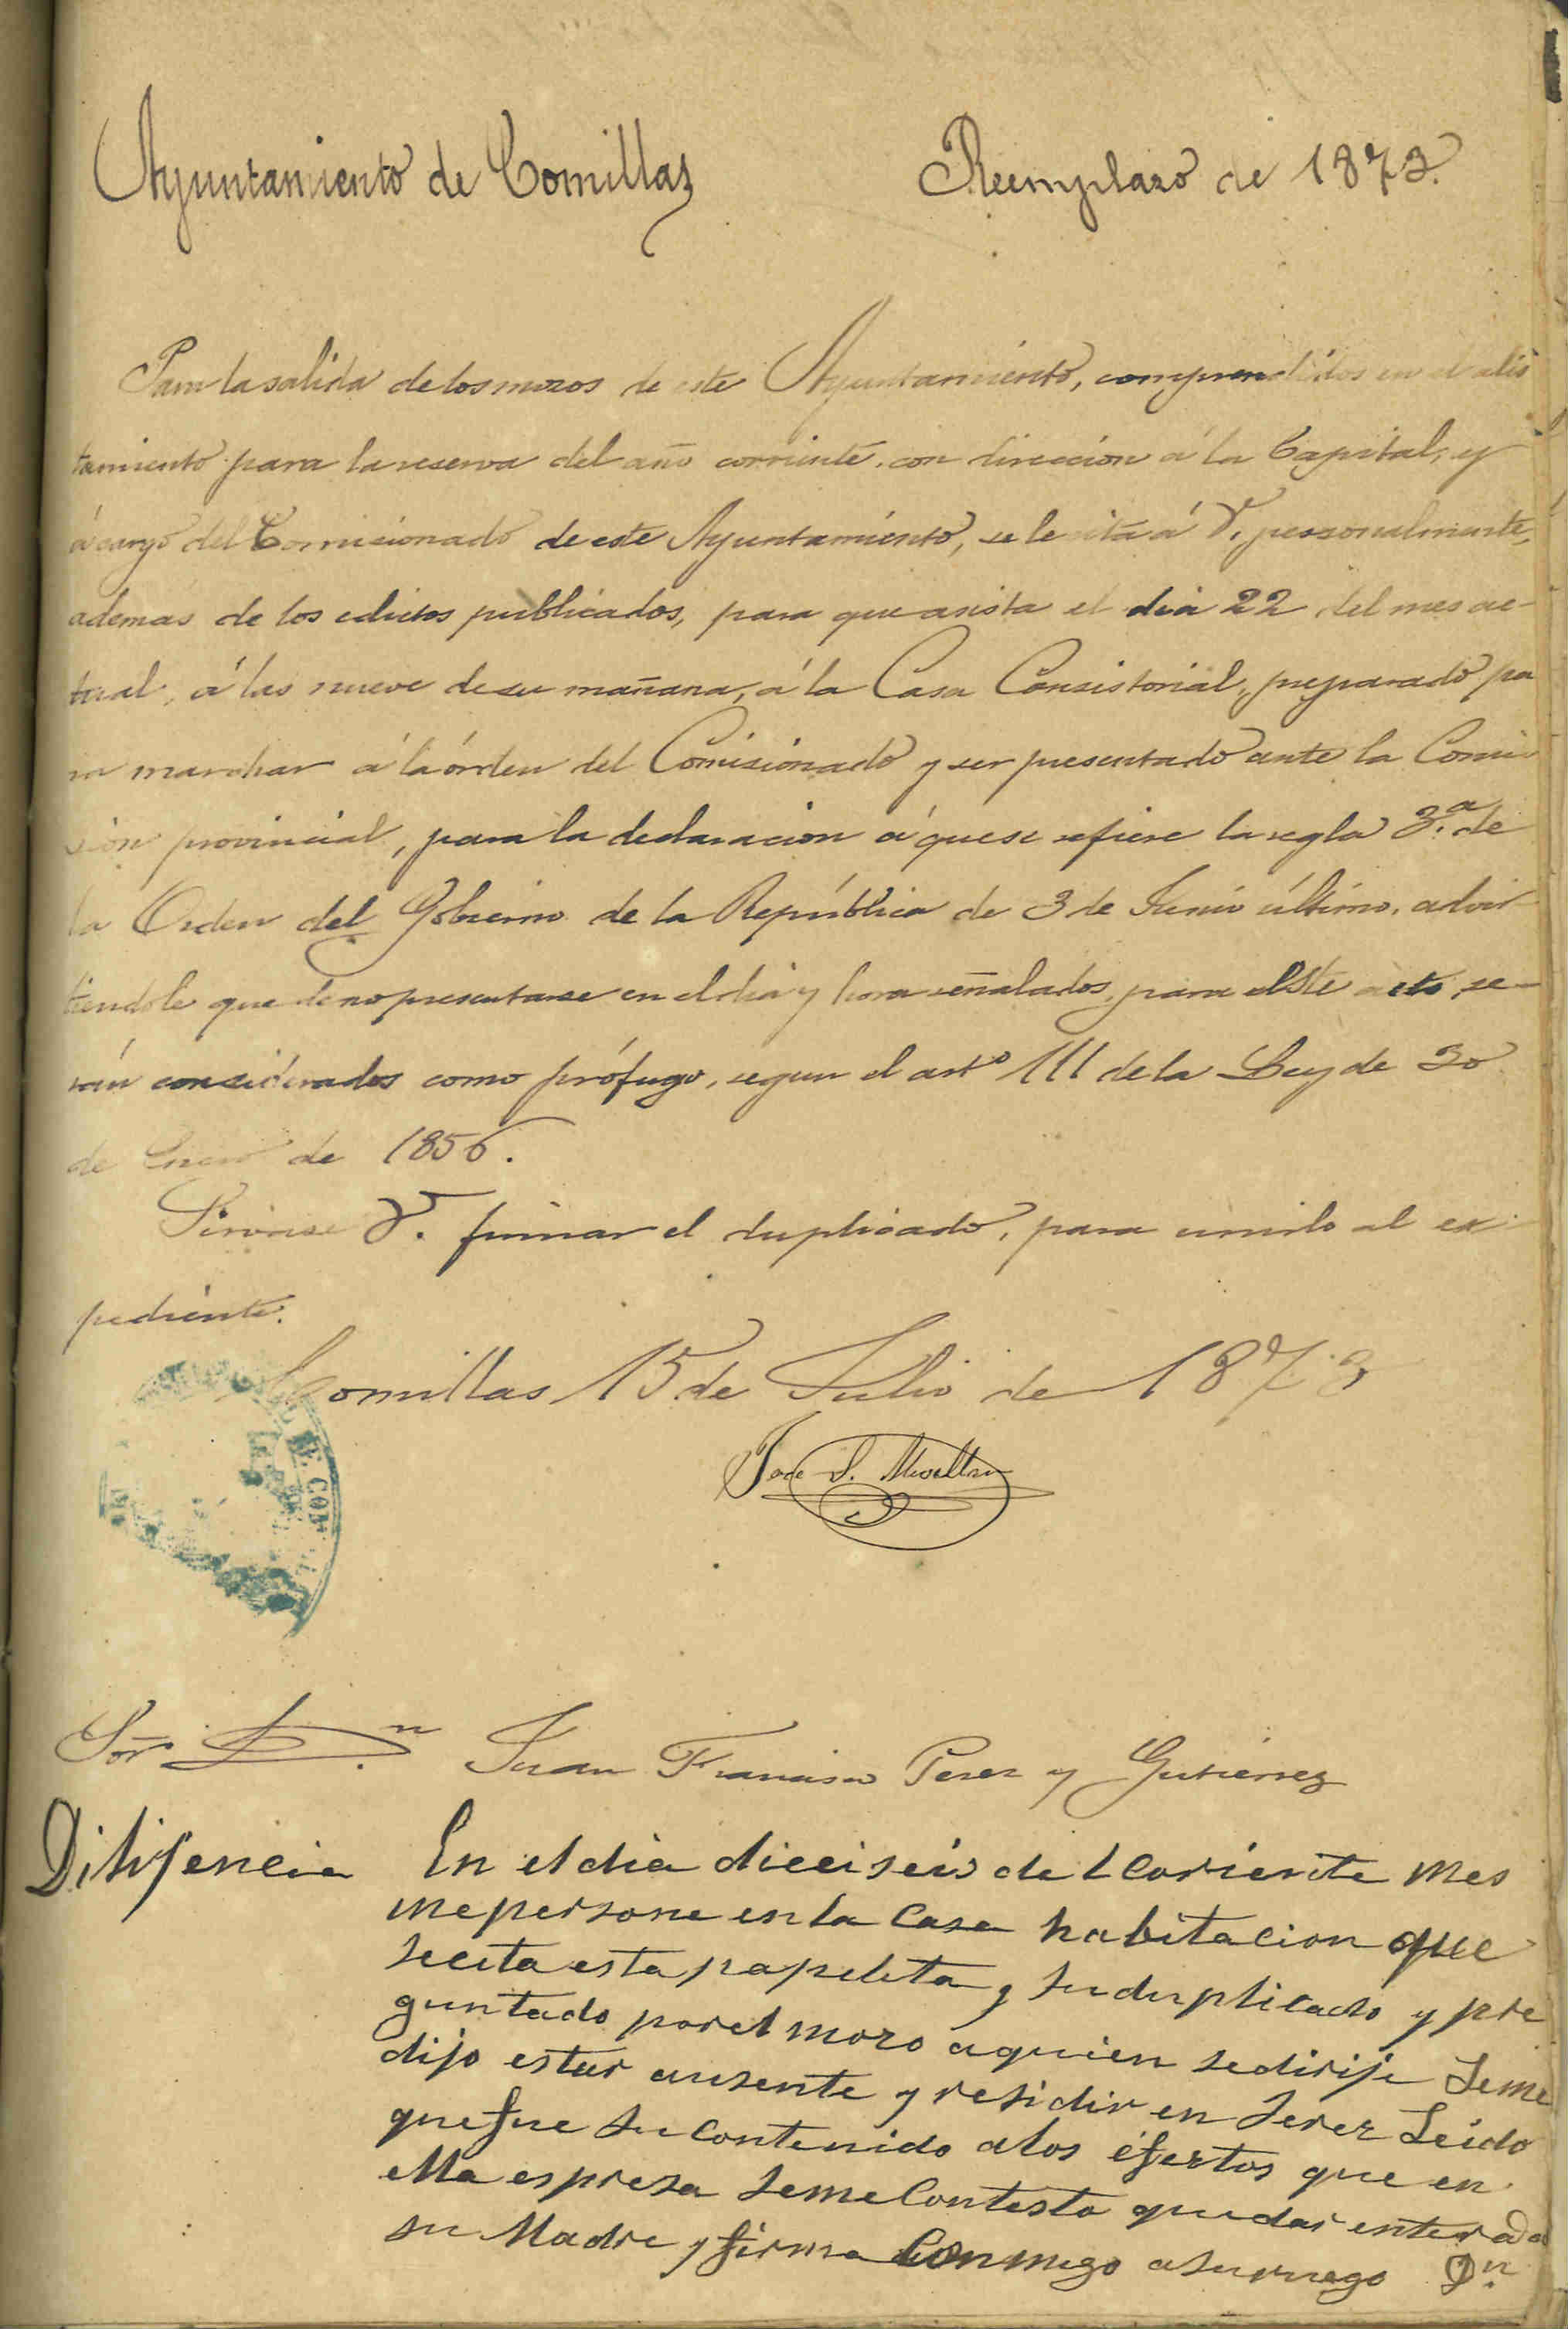 Ayuntamiento de Comillas
Reemplazo de 1873.
Para la salida de los mozos de este Ayuntamiento, comprendidos en el alis
tamiento para la reserva del año corriente, con direccion á la Capital, y
á cargo del Comisionado de este Ayuntamiento, se le cita á V. personalmente,
ademas de los edictos publicados, para que asista el dia 22 del mes ac-
tual, á las nueve de su mañana, á la Casa Consistorial, preparado pa
ra marchar á la órden del Comisionado y ser presentado ante la Comi
sion provincial, para la declaracion á que se refiere la regla 3.a de
la Orden del Gobierno de la República de 3 de Junio último, advir
tiendole que de no presentarse en el dia y hora señalados, para este acto, se-
rán considerados como prófugo, segun el arto 111 de la Ley de 30
de Enero de 1856.
Sirvase V. firmar el duplicado, para unirlo al ex-
pediente.
Comillas 15 de Julio de 1873
Jose S.
COM
Sor. Dn. Juan Francisco Perez y Gutierrez
Dilijencia En el dia dieciseis del Coriente mes
me persone en la Casa habitacion que
se cita esta papeleta y su duplicado y pre
guntado por el mozo a quien se dirije Seme
dijo estar ausente y residir en Jerez Leido
que fue su contenido a los efertos que en
ella espresa seme Contesto quedar enterada
su Madre y firma Conmigo a su ruego Dn.